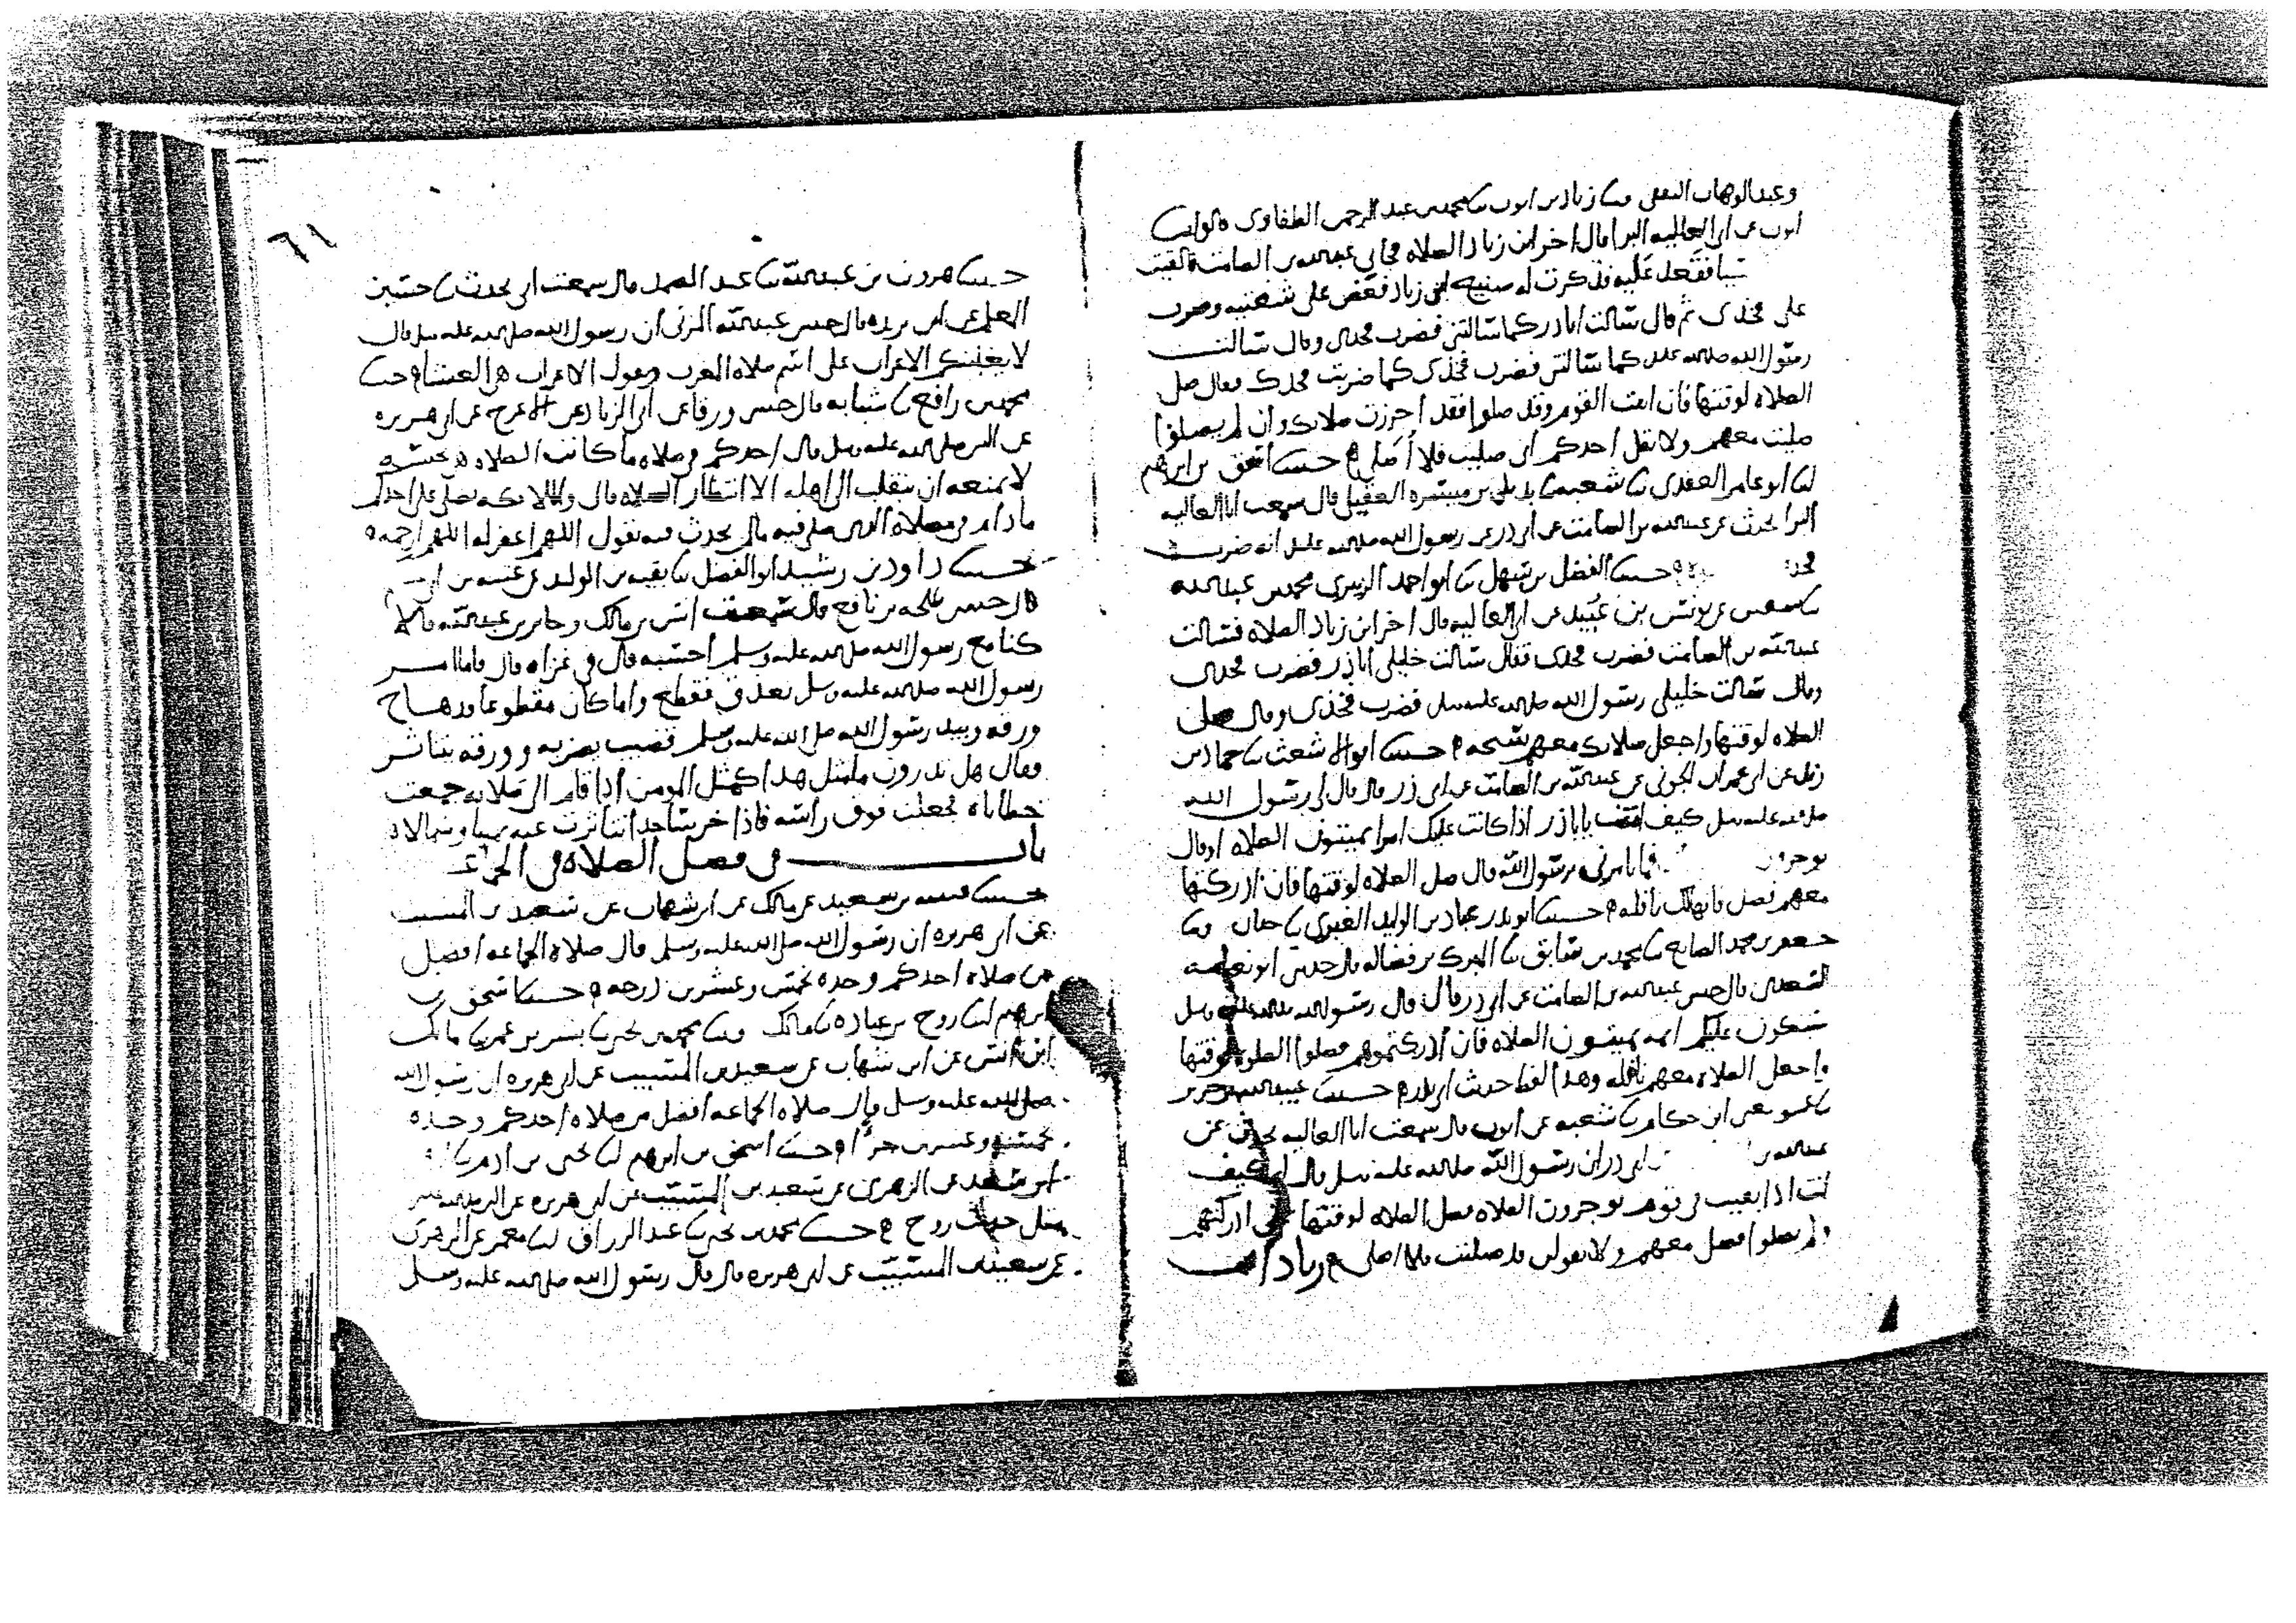 وعبد الوهاب الثقفي وثنا زياد بن ايوب ثنا محمد بن عبد الرحمن الطفاوي قالوا ثنا
ايوب عن ابي العالية البرا قال اخر ابن زياد الصلاه فجاني عبد الله بن الصامت فالقيت
شيا فقعد عليه فذكرت له صنيع ابن زياد فعض على شفتيه وضرب
على فخذي ثم قال سالت اباذر كما سالتني فضرب فخذي وقال سالت
رسول الله صلى الله عليه كما سالتني فضرب فخذي كما ضربت فخذك فقال صل
الصلاه لوقتها فان اتيت القوم وقد صلوا فقد احرزت صلاتك وان لم يصلوا
صليت معهم ولا تقل احدكم اني صليت فلا اصلي حدثنا اسحق بن ابرهيم
انا ابو عامر العقدي ثنا شعبه ثنا بديل بن ميسره العقيلي قال سمعت ابا العاليه
البرا يحدث عن عبد الله بن الصامت عن ابي ذر عن رسول الله صلى الله عليه انه ضرب
فخذ حدثنا الفضل بن سهل ثنا ابو احمد الزبيري محمد بن عبد الله
ثنا سفين عن يونس بن عبيد عن ابي العاليه قال اخر ابن زياد الصلاه فسالت
عبد الله بن الصامت فضرب فخذي فقال سالت خليلي اباذر فضرب فخذي
وقال سالت خليلي رسول الله صلى الله عليه وسلم فضرب فخذي وقال صل
الصلاه لوقتها واجعل صلاتك معهم سبحه حدثنا ابو الاشعث ثنا حماد بن
زيد عن ابي عمران الجوني عن عبد الله بن الصامت عن ابي ذر قال قال لي رسول الله
صلى الله عليه وسلم كيف انت يا باذر اذا كانت عليك امرا يميتون الصلاه او قال
يوخرون فما تامرني يرسول الله قال صل الصلاه لوقتها فان ادركتها
معهم فصل فانها لك نافله حدثنا ابو بدر عباد بن الوليد الغبري ثنا حبان وثنا
جعفر بن محمد الصايغ ثنا محمد بن سابق ثنا المبرك بن فضاله قال حدثني ابو نعامه
السعدي قال حدثني عبد الله بن الصامت عن ابي ذر قال قال رسول الله صلى الله عليه وسلم
ستكون عليكم ايمه يميتون الصلاه فان ادركتموهم فصلوا الصلوه لوقتها
واجعل الصلاه معهم نافله وهذا لفظ حديث ابي بدر حدثنا عبيد الله بن جرير
ثنا عمرو يعني ابن حكام ثنا شعبه عن ايوب قال سمعت ابا العاليه يحدث عن
عبد الله بن ابي ذر ان رسول الله صلى الله عليه وسلم قال له كيف
انت اذا بقيت في قوم يوخرون الصلاه فصل الصلاه لوقتها ادركتهم
ولم يصلوا فصل معهم ولا تقولن قد صليت فلا اصلي
٦١
حدثنا هرون بن عبد الله ثنا عبد الصمد قال سمعت ابي يحدث ثنا حسين
المعلم عن ابن بريده قال حدثني عبد الله المزني ان رسول الله صلى الله عليه وسلم قال
لا يغلبنكم الاعراب على اسم صلاه المغرب وتقول الاعراب هي العشا حدثنا
محمد بن رافع ثنا شبابه قال حدثني ورقا عن ابي الزناد عن الاعرج عن ابي هريره
عن النبي صلى الله عليه وسلم قال احدكم في صلاه ما كانت الصلاه تحبسه
لا يمنعه ان ينقلب الى اهله الا انتظار الصلاه قال والملايكه تصلي على احدكم
ما دام في مصلاه الذي صلى فيه مالم يحدث فيه تقول اللهم اغفر له اللهم ارحمه
حدثنا داود بن رشيد ابو الفضل ثنا بقيه بن الوليد عن عتبه بن ابي
قال حدثني طلحه بن نافع قال سمعت انس بن مالك وجابر بن عبد الله قالا
كنا مع رسول الله صلى الله عليه وسلم احسبه قال في غزاه قال فاما امر
رسول الله صلى الله عليه وسلم بعذق فقطع واما كان مقطوعا قد هاج
ورقه وبيد رسول الله صلى الله عليه وسلم قضيب يضربه وورقه يتناثر
وقال هل تدرون ما مثل هذا كمثل المومن اذا قام الى صلاته جمعت
خطاياه فجعلت فوق راسه فاذا خر ساجدا تناثرت عنه يمينا وشمالا
باب في فضل الصلاه في الجماعه
حدثنا قتيبه بن سعيد عن مالك عن ابن شهاب عن سعيد بن المسيب
عن ابي هريره ان رسول الله صلى الله عليه وسلم قال صلاه الجماعه افضل
من صلاه احدكم وحده بخمس وعشرين درجه حدثنا اسحق بن
ابرهيم انا روح بن عباده ثنا مالك وثنا محمد بن يحيى ثنا بشر بن عمر ثنا مالك
ابن انس عن ابن شهاب عن سعيد بن المسيب عن ابي هريره ان رسول الله
صلى الله عليه وسلم قال صلاه الجماعه افضل من صلاه احدكم وحده
بخمسه وعشرين جزا وحدثنا اسحق بن ابرهيم انا يحيى بن ادم ثنا
ابرهيم بن سعد عن الزهري عن سعيد بن المسيب عن ابي هريره عن النبي صلى الله عليه
بمثل حديث روح حدثنا محمد بن يحيى ثنا عبد الرزاق انا معمر عن الزهري
عن سعيد بن المسيب عن ابي هريره قال قال رسول الله صلى الله عليه وسلم